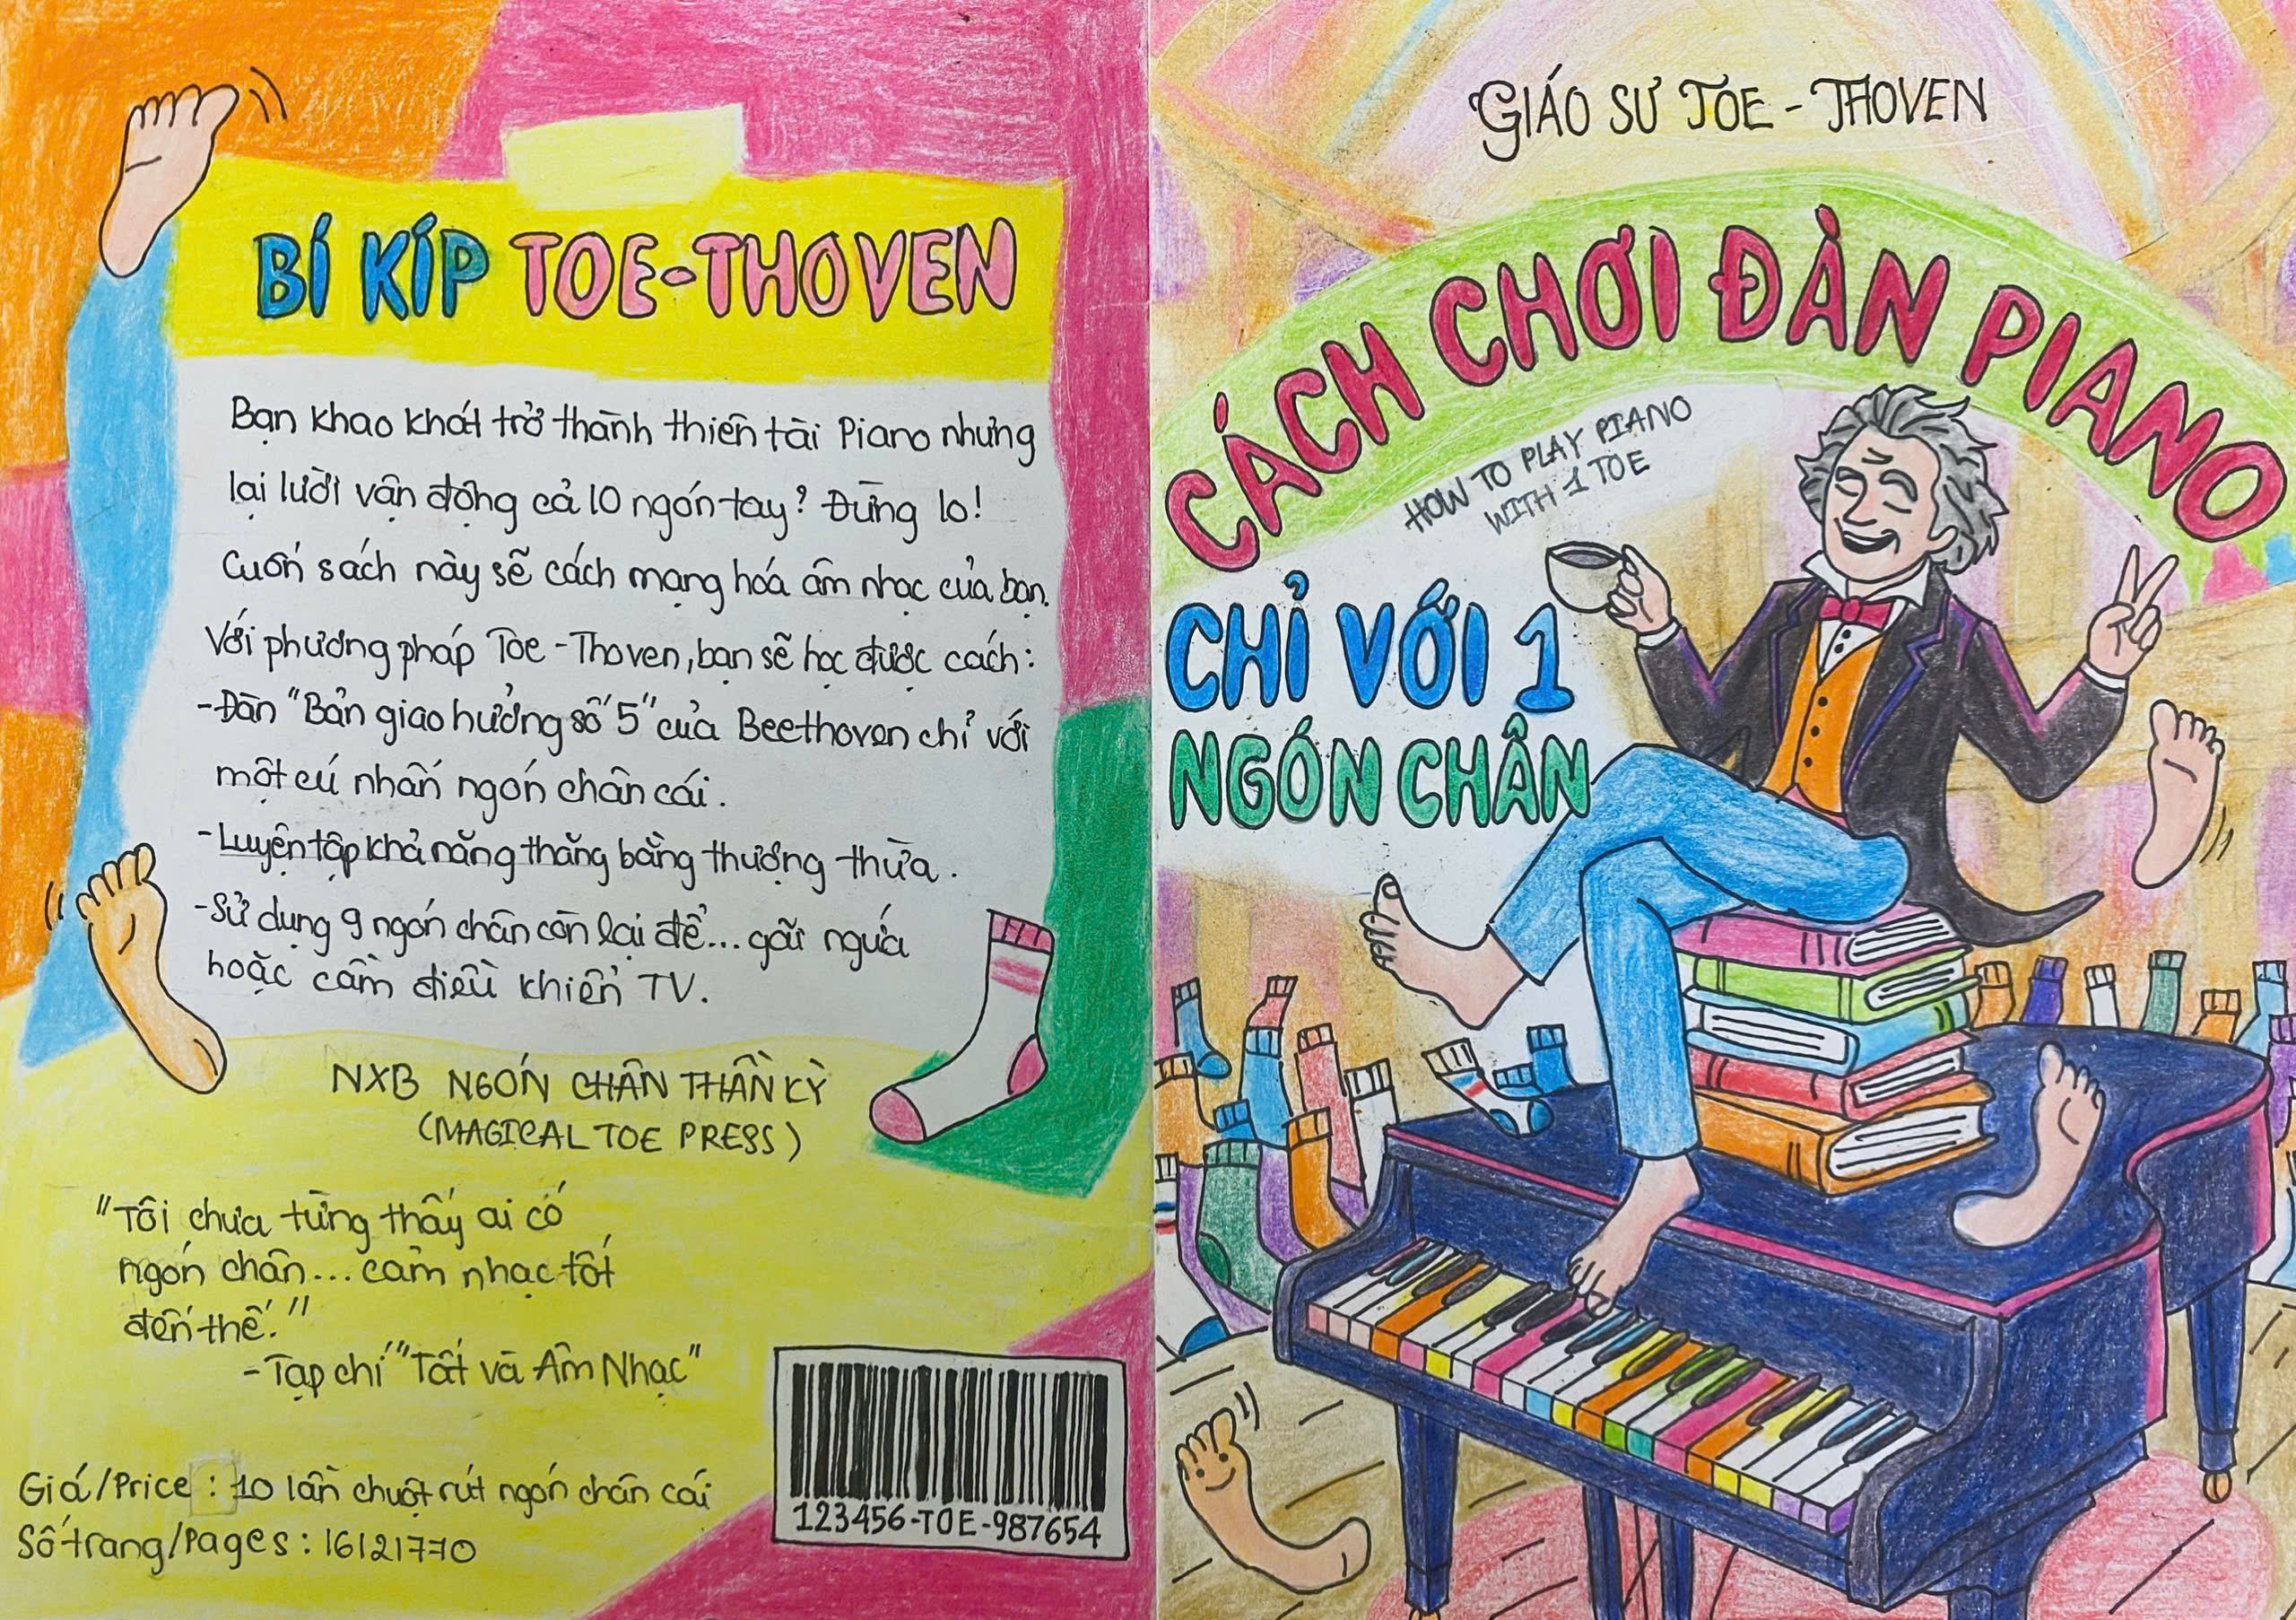 BÍ KÍP TOE-THOVEN
Bạn khao khát trở thành thiên tài Piano nhưng
lại lười vận động cả 10 ngón tay? Đừng lo!
Cuốn sách này sẽ cách mạng hoá âm nhạc của bạn.
Với phương pháp Toe-Thoven, bạn sẽ học được cách:
-Đàn "Bản giao hưởng số "5" của Beethoven chỉ với
một cú nhấn ngón chân cái.
-Luyện tập khả năng thăng bằng thượng thừa.
-Sử dụng 9 ngón chân còn lại để... gãi ngứa
hoặc cầm điều khiển TV.
NXB NGÓN CHÂN THẦN KỲ
(MAGICAL TOE PRESS)
"Tôi chưa từng thấy ai có
ngón chân... cảm nhạc tốt
đến thế."
-Tạp chí "Tất và Âm Nhạc"
Giá/Price : 10 lần chuột rút ngón chân cái
Số trang/Pages : 16121770
123456-TOE-987654
GIÁO SƯ TOE-THOVEN
CÁCH CHƠI ĐÀN PIANO
HOW TO PLAY PIANO
WITH 1 TOE
CHỈ VỚI 1
NGÓN CHÂN